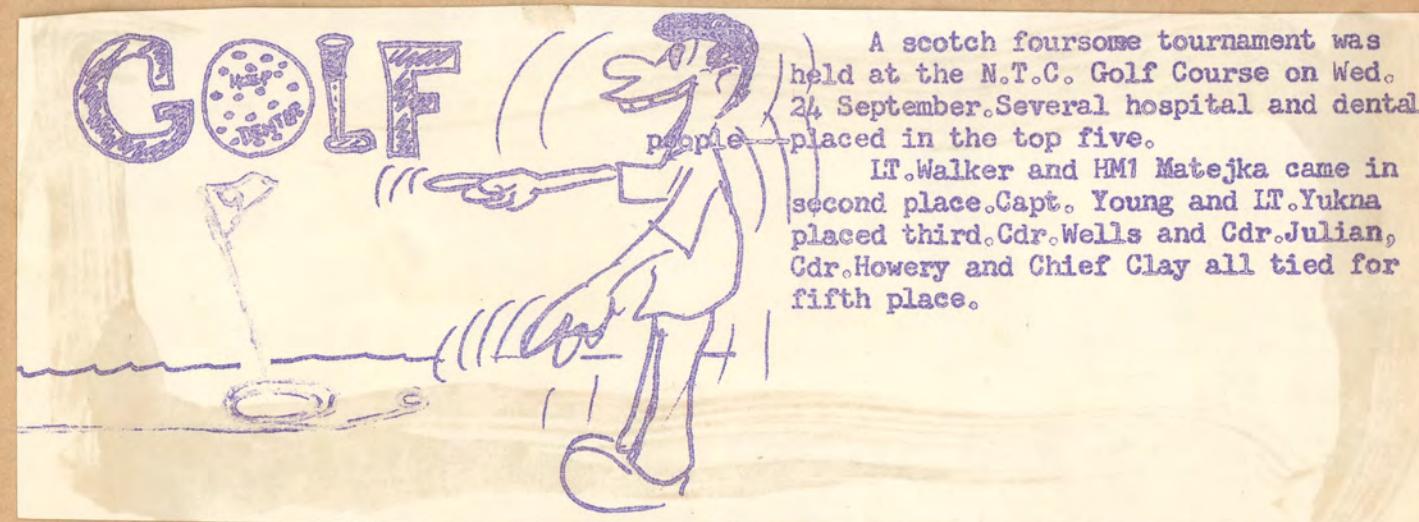 GOLF
A scotch foursome tournament was
held at the N.T.C. Golf Course on Wed.
24 September.Several hospital and dental
people--placed in the top five.
LT.Walker and HM1 Matejka came in
second place.Capt. Young and LT.Yukna
placed third.Cdr.Wells and Cdr.Julian,
Cdr.Howery and Chief Clay all tied for
fifth place.